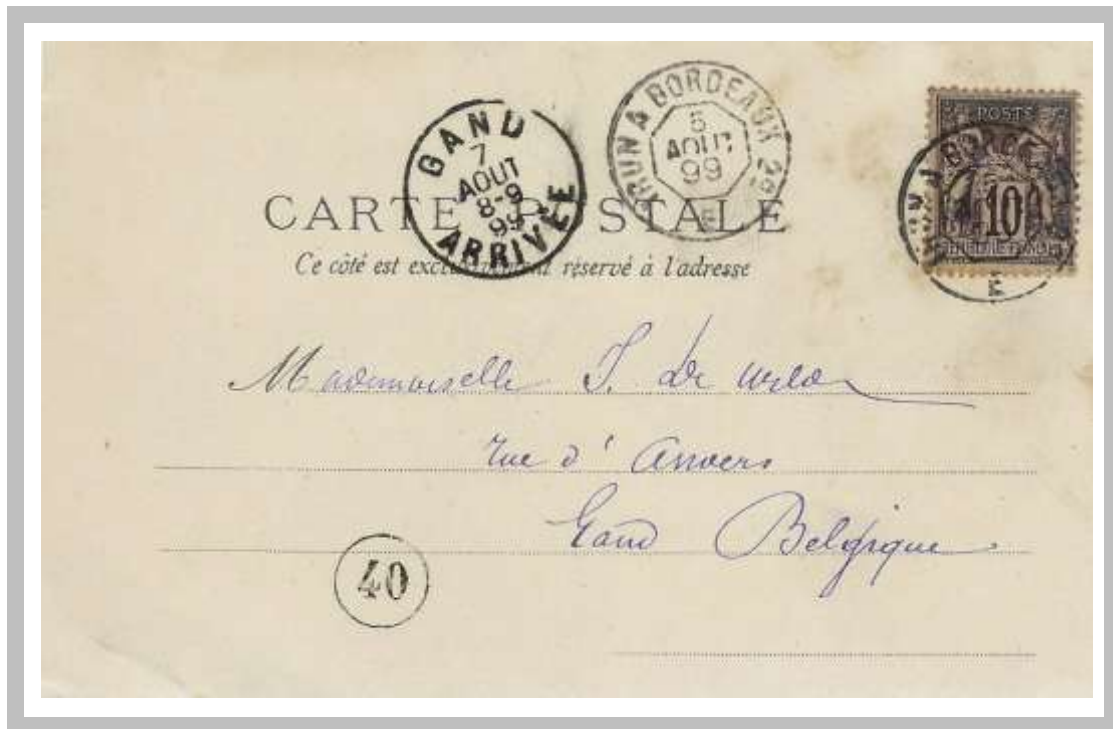 GAND
7
AOUT
8-9
99
ARRIVÉE
IRUN A BORDEAUX 2º
5
AOUT
99
E
POSTE
10
BORDE
E
CARTE POSTALE
Ce côté est exclusivement réservé à l'adresse
Mademoiselle J. De
rue d' Anvers
Gand Belgique
40